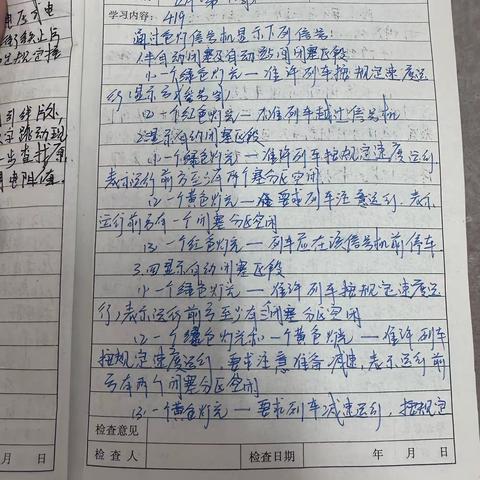 学习内容: 419.
通过色灯信号机显示下列信号:
1.半自动闭塞及自动站间闭塞区段
(1)一个绿色灯光一准许列车按规定速度运
行
(2)一个红色灯光一不准列车越过信号机
2.三显示自动闭塞区段
(1)一个绿色灯光一准许列车按规定速度运行,
表示运行前方至少有两个闭塞分区空闲
(2)一个黄色灯光一要求列车注意运行,表示
运行前方有一个闭塞分区空闲
(3)一个红色灯光一列车应在该信号机前停车
3.四显示自动闭塞区段
(1)一个绿色灯光一准许列车按规定速度运
行,表示运行前方至少有三个闭塞分区空闲
(2)一个绿色灯光和一个黄色灯光一准许列车
按规定速度运行,要求注意准备减速,表示运行前
方有两个闭塞分区空闲
(3)一个黄色灯光一要求列车减速运行,按规定
检查意见
检 查 人 检查日期 年 月 日
月 日